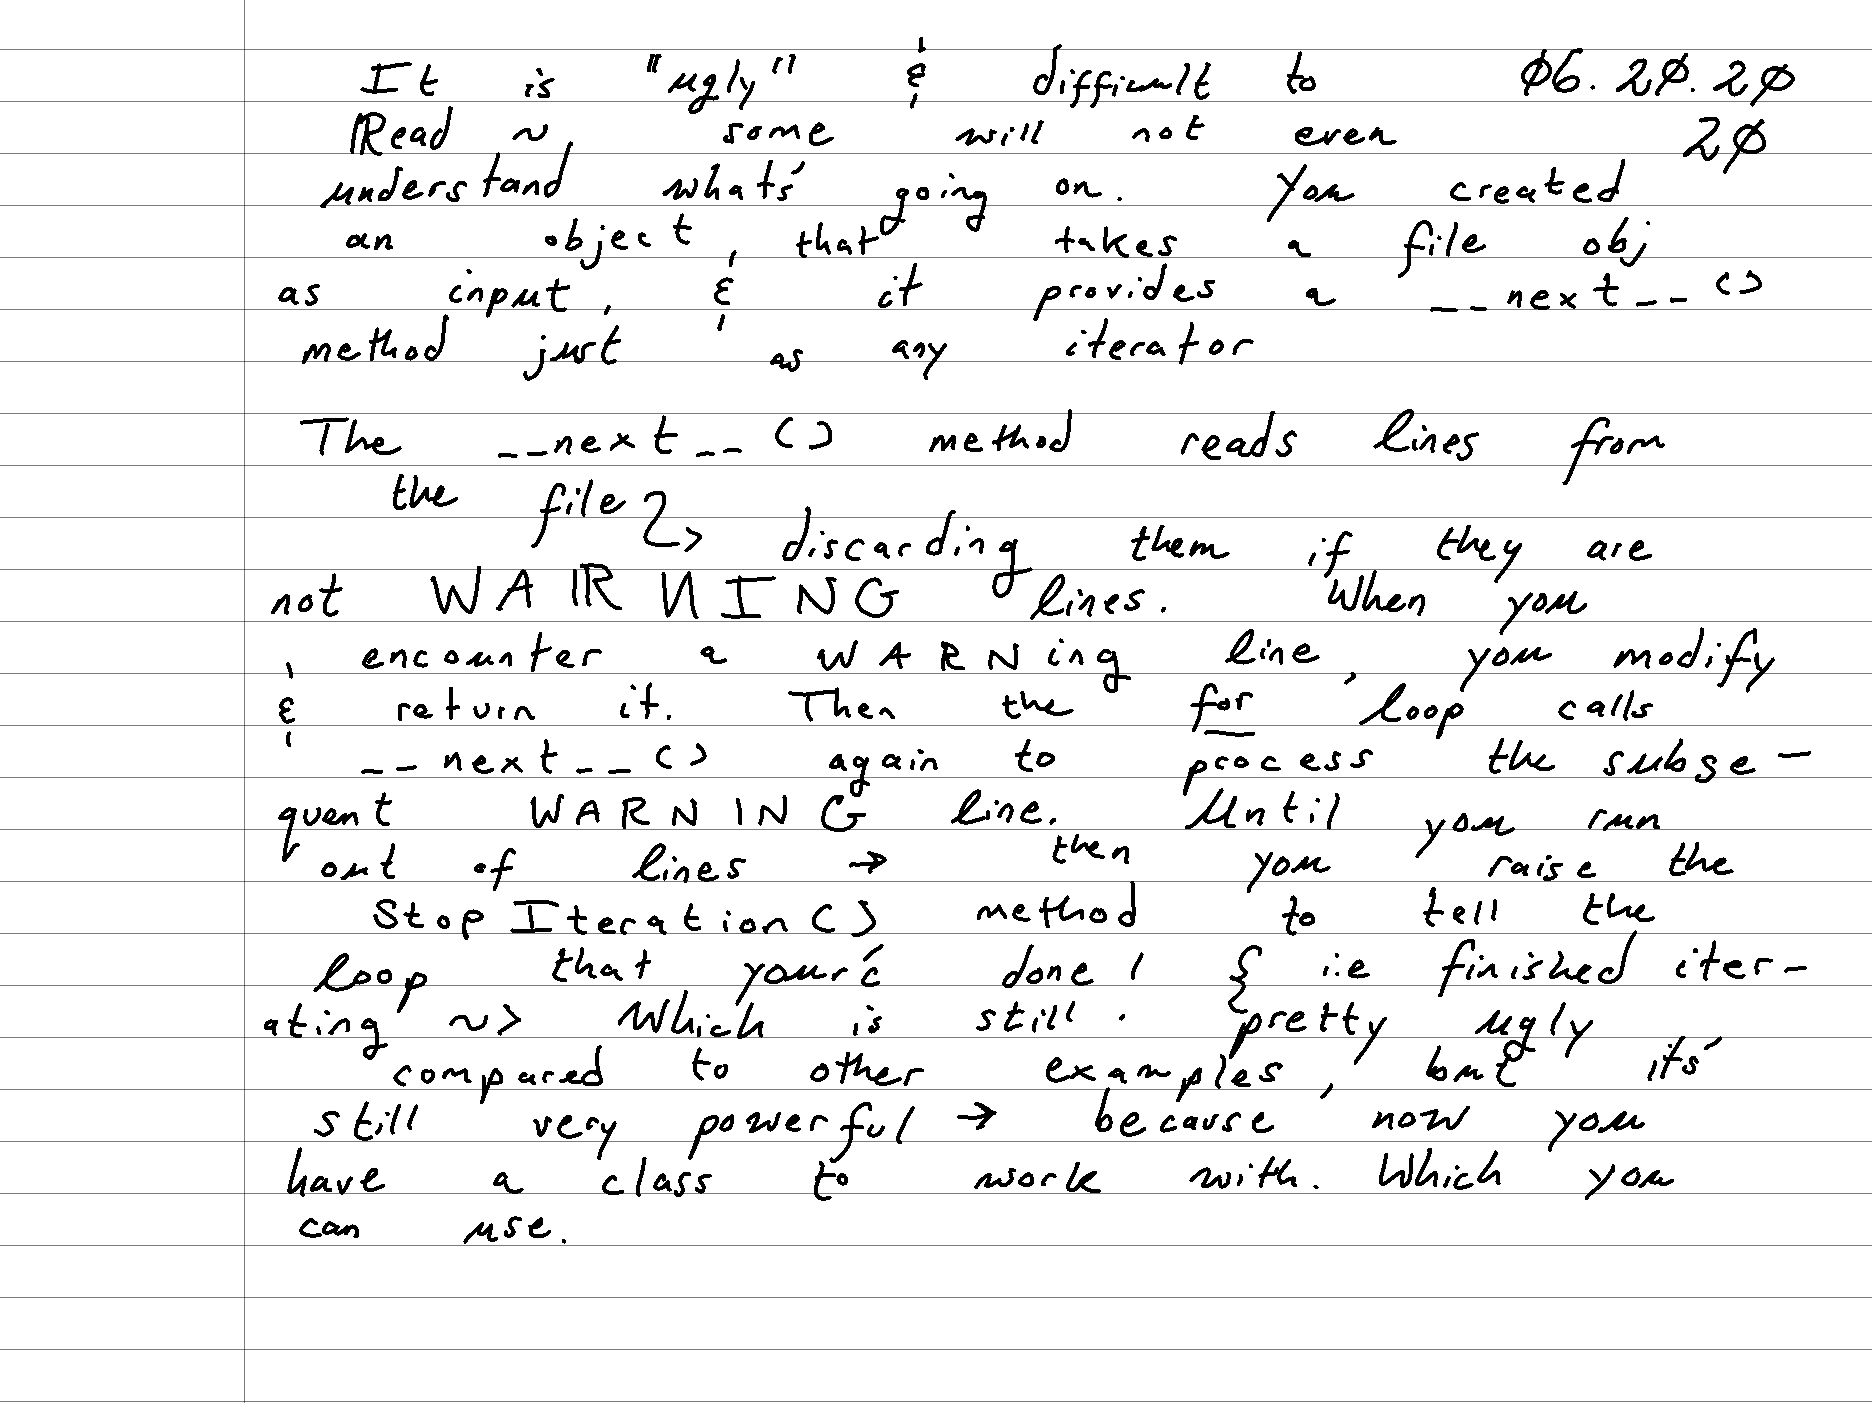 It is "ugly" & difficult to 06.20.20
Read ~ some will not even 20
understand whats' going on. You created
an object, that takes a file obj
as input, & it provides a __next__()
method just as any iterator
The __next__() method reads lines from
the file
discarding them if they are
not WARNING lines. When you
encounter a WARNing line, you modify
& return it. Then the for loop calls
__next__() again to process the subse-
quent WARNING line. Until you run
out of lines → then you raise the
StopIteration() method to tell the
loop that your'e done! { i.e finished iter-
ating ~> Which is still. pretty ugly
compared to other examples, but its'
still very powerful → because now you
have a class to work with. Which you
can use.